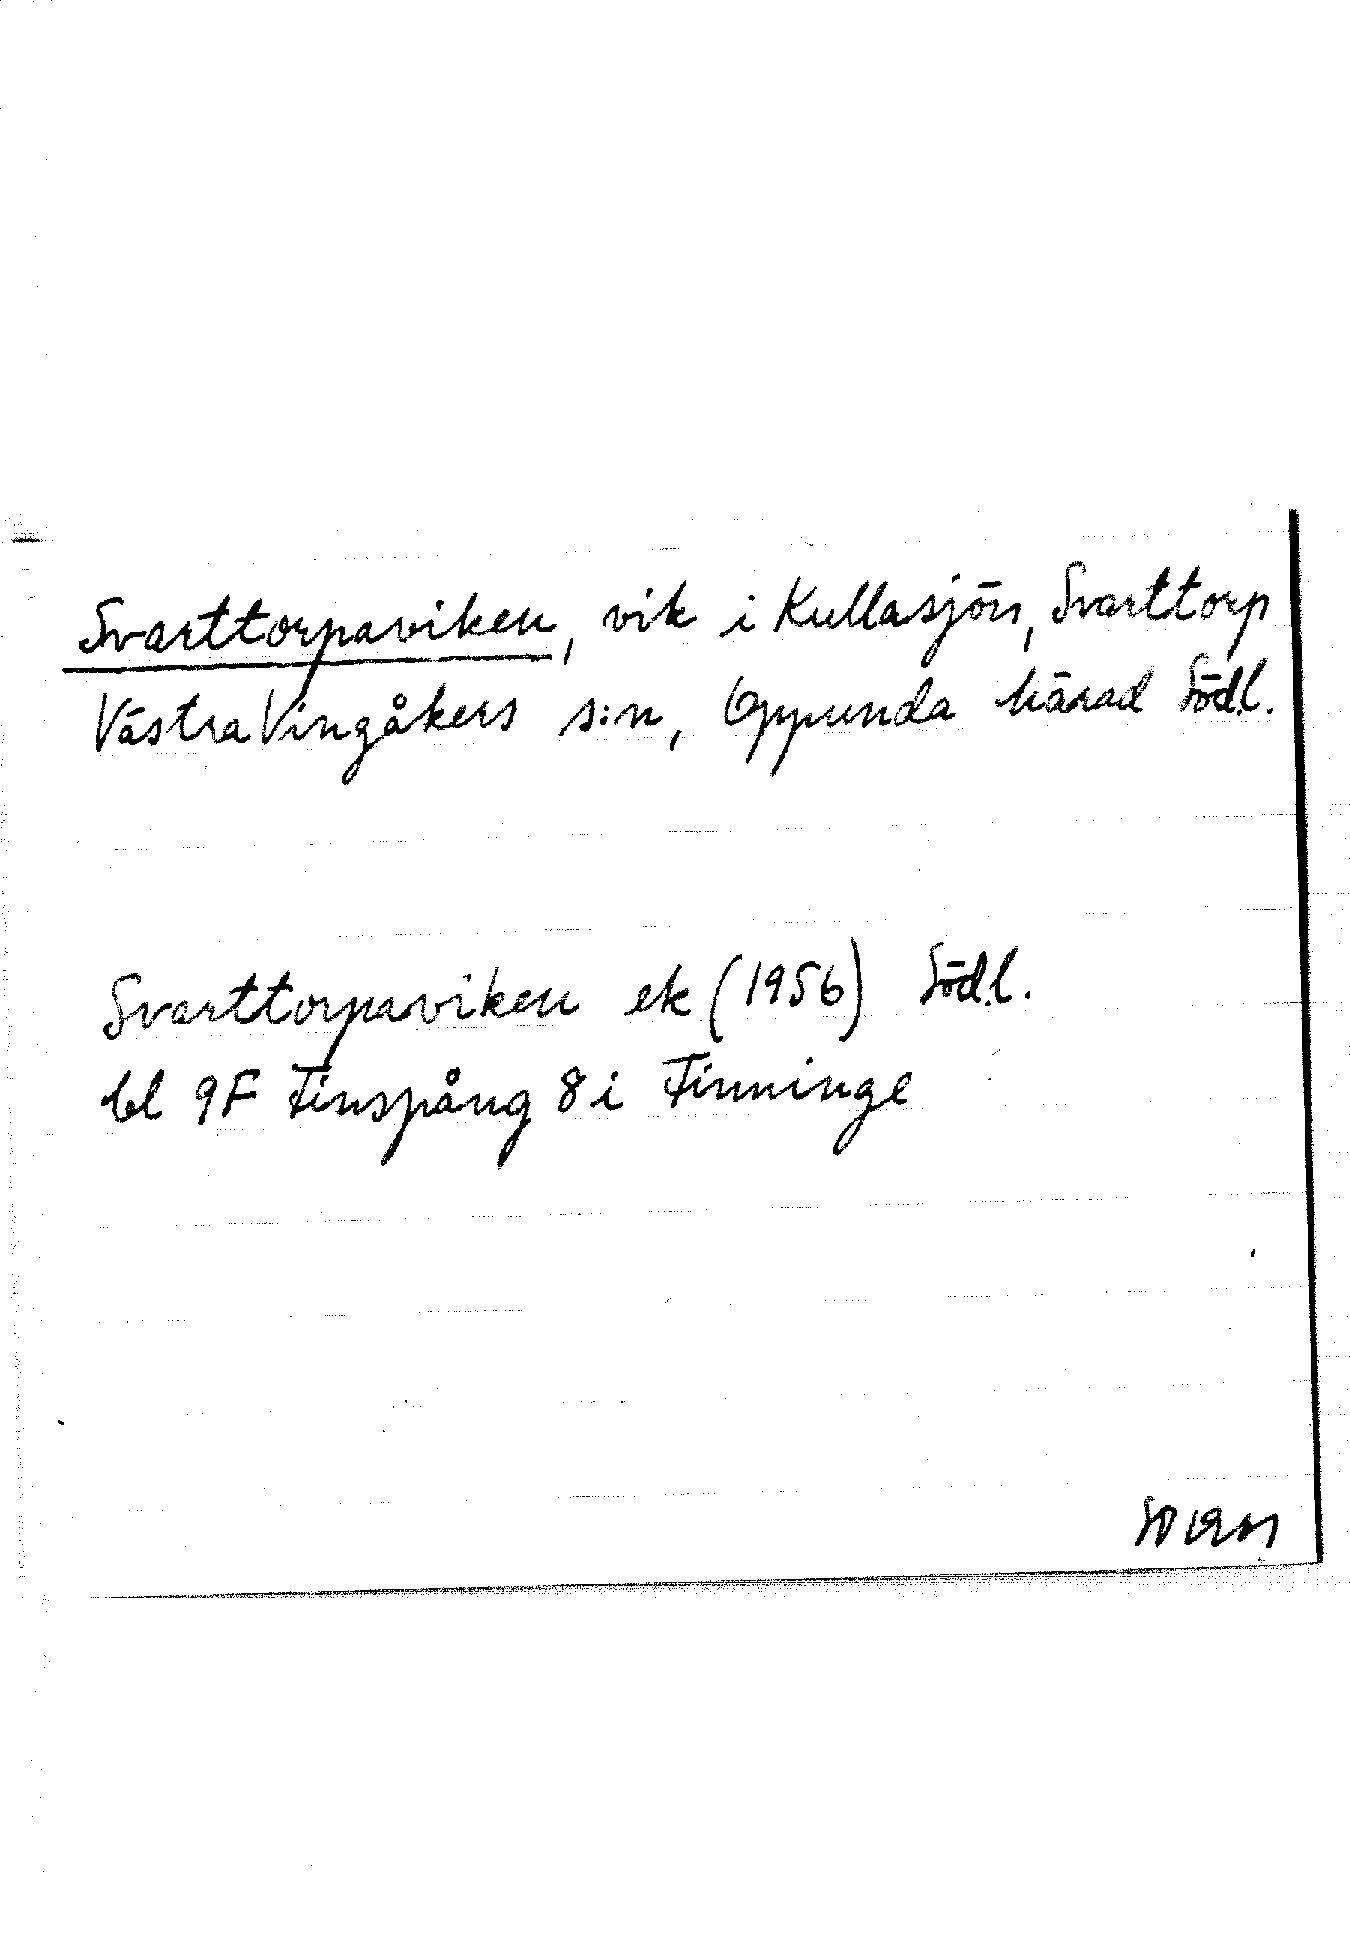 Svarttorpaviken, vik i Kullasjön, Svarttorp
Västra Vingåkers s:n, Oppunda härad Södl.
Svarttorpaviken ek (1956) Södl.
bl 9F Finspång 8i Finninge